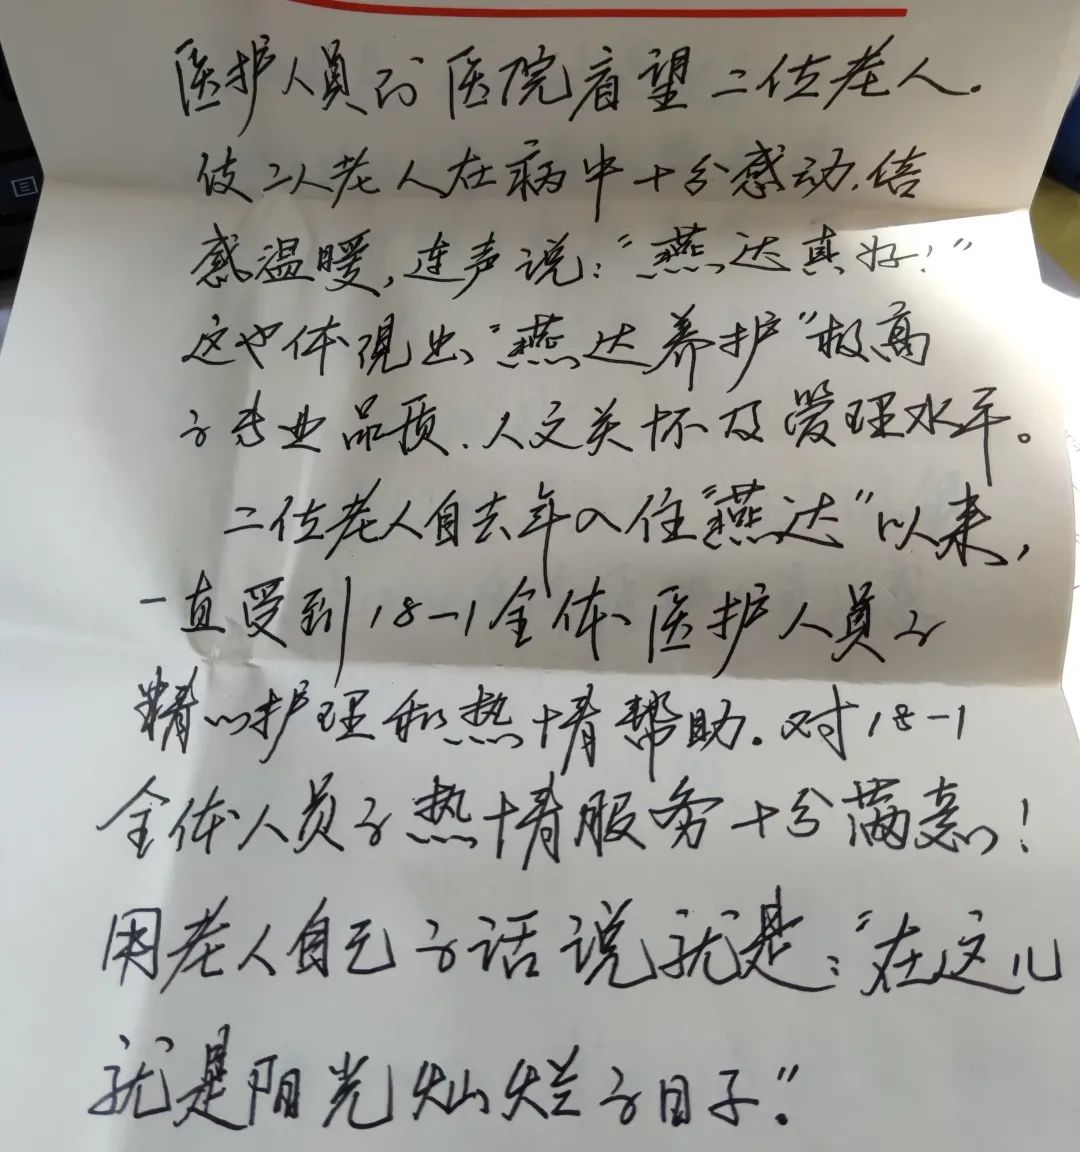 医护人员到医院看望二位老人.
使二人老人在病中十分感动.倍
感温暖,连声说:“燕达真好!”
这也体现出“燕达养护”极高
的专业品质.人文关怀及管理水平。
二位老人自去年入住“燕达”以来,
一直受到18-1全体医护人员的
精心护理和热情帮助.对18-1
全体人员的热情服务十分满意!
用老人自己的话说就是:“在这儿
就是阳光灿烂的日子.”